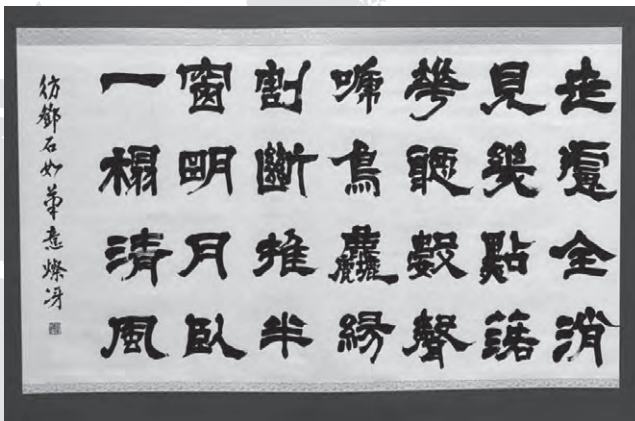 世慮全消
見幾點落
華聽數聲
啼鳥塵緣
割斷推半
窗明月臥
一榻清風
仿鄧石如筆意 燦冴